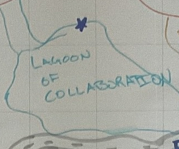 LAGOON
OF
COLLABORATION